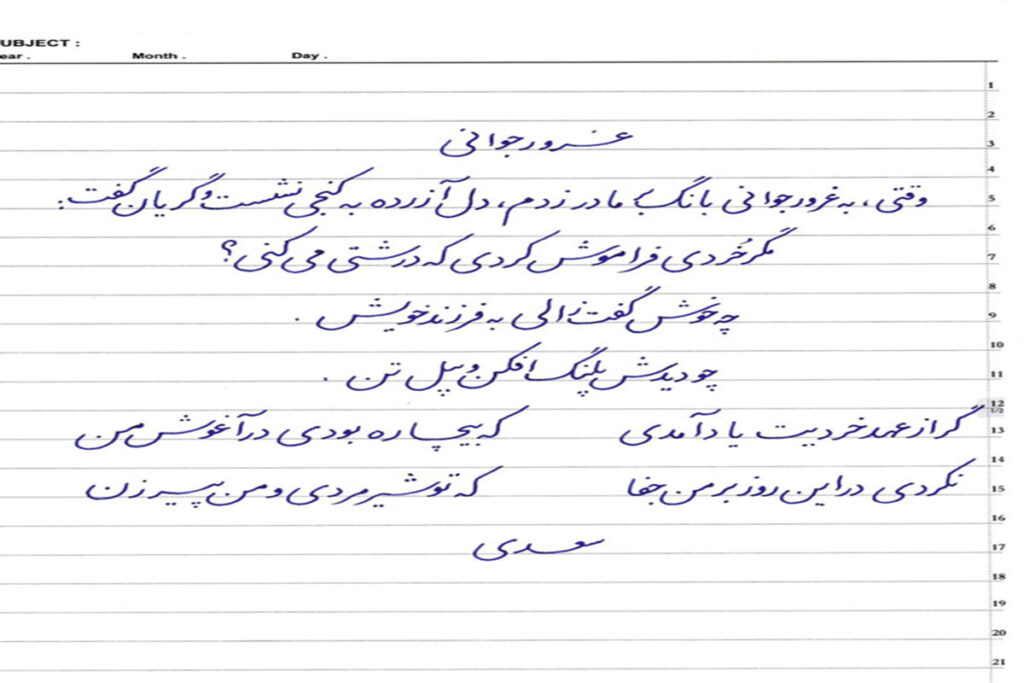 SUBJECT :
ear . Month . Day .
غرور جوانی
وقتی، به غرور جوانی بانگ بر مادر زدم، دل آزرده به کنجی نشست و گریان گفت:
مگر خُردی فراموش کردی که درشتی می کنی؟
چه خوش گفت زالی به فرزند خویش .
چو دیدش پلنگ افکن و پیل تن .
گر از عهد خردیت یاد آمدی که بیچاره بودی در آغوش من
نکردی در این روز بر من جفا که تو شیر مردی و من پیر زن
سعدی
1
2
3
4
5
6
7
8
9
10
11
12
1/2
13
14
15
16
17
18
19
20
21